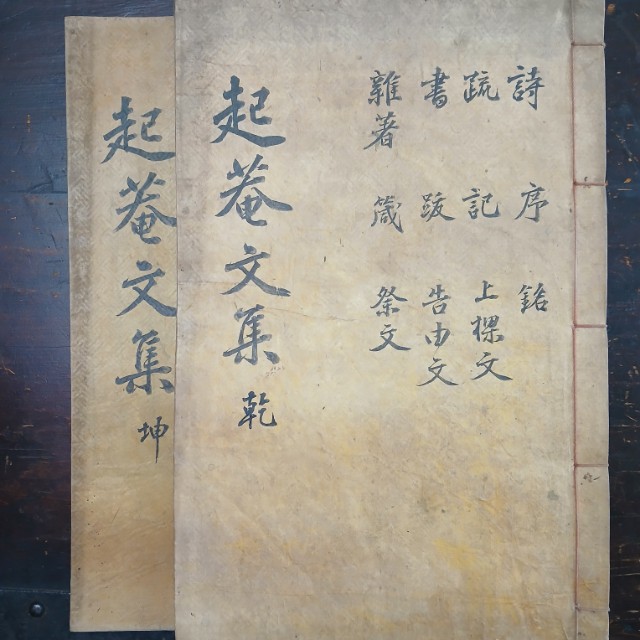 詩 序 銘
疏 記 上樑文
書 跋 告由文
雜著 箴 祭文
起菴文集 乾
起菴文集 坤